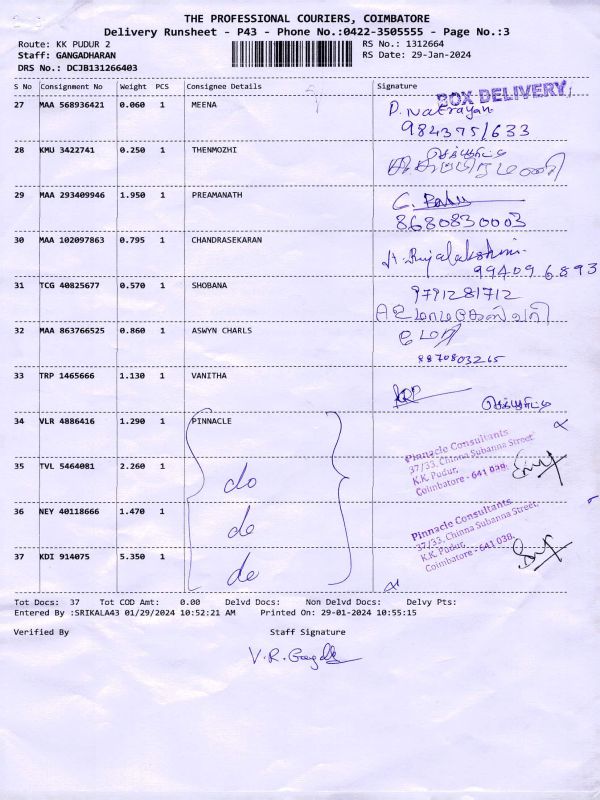 THE PROFESSIONAL COURIERS, COIMBATORE
Delivery Runsheet - P43 - Phone No.:0422-3505555 - Page No.:3
Route: KK PUDUR 2 RS No.: 1312664
Staff: GANGADHARAN RS Date: 29-Jan-2024
DRS No.: DCJB131266403
S No Consignment No Weight PCS Consignee Details Signature
BOX DELIVERY
27 MAA 568936421 0.060 1 MEENA P. Natrayan
9843751633
28 KMU 3422741 0.250 1 THENMOZHI
29 MAA 293409946 1.950 1 PREAMANATH
8680830003
30 MAA 102097863 0.795 1 CHANDRASEKARAN
99409 6893
31 TCG 40825677 0.570 1 SHOBANA 9791281712
32 MAA 863766525 0.860 1 ASWYN CHARLS
8870803265
33 TRP 1465666 1.130 1 VANITHA
34 VLR 4886416 1.290 1 PINNACLE
Pinnacle Consultants
37/33, Chinna Subanna Street,
K.K. Pudur,
Coimbatore - 641 038.
35 TVL 5464081 2.260 1 do
36 NEY 40118666 1.470 1 do
Pinnacle Consultants
37/33, Chinna Subanna Street,
K.K. Pudur,
Coimbatore - 641 038.
37 KDI 914075 5.350 1 do
Tot Docs: 37 Tot COD Amt: 0.00 Delvd Docs: Non Delvd Docs: Delvy Pts:
Entered By :SRIKALA43 01/29/2024 10:52:21 AM Printed On: 29-01-2024 10:55:15
Verified By Staff Signature